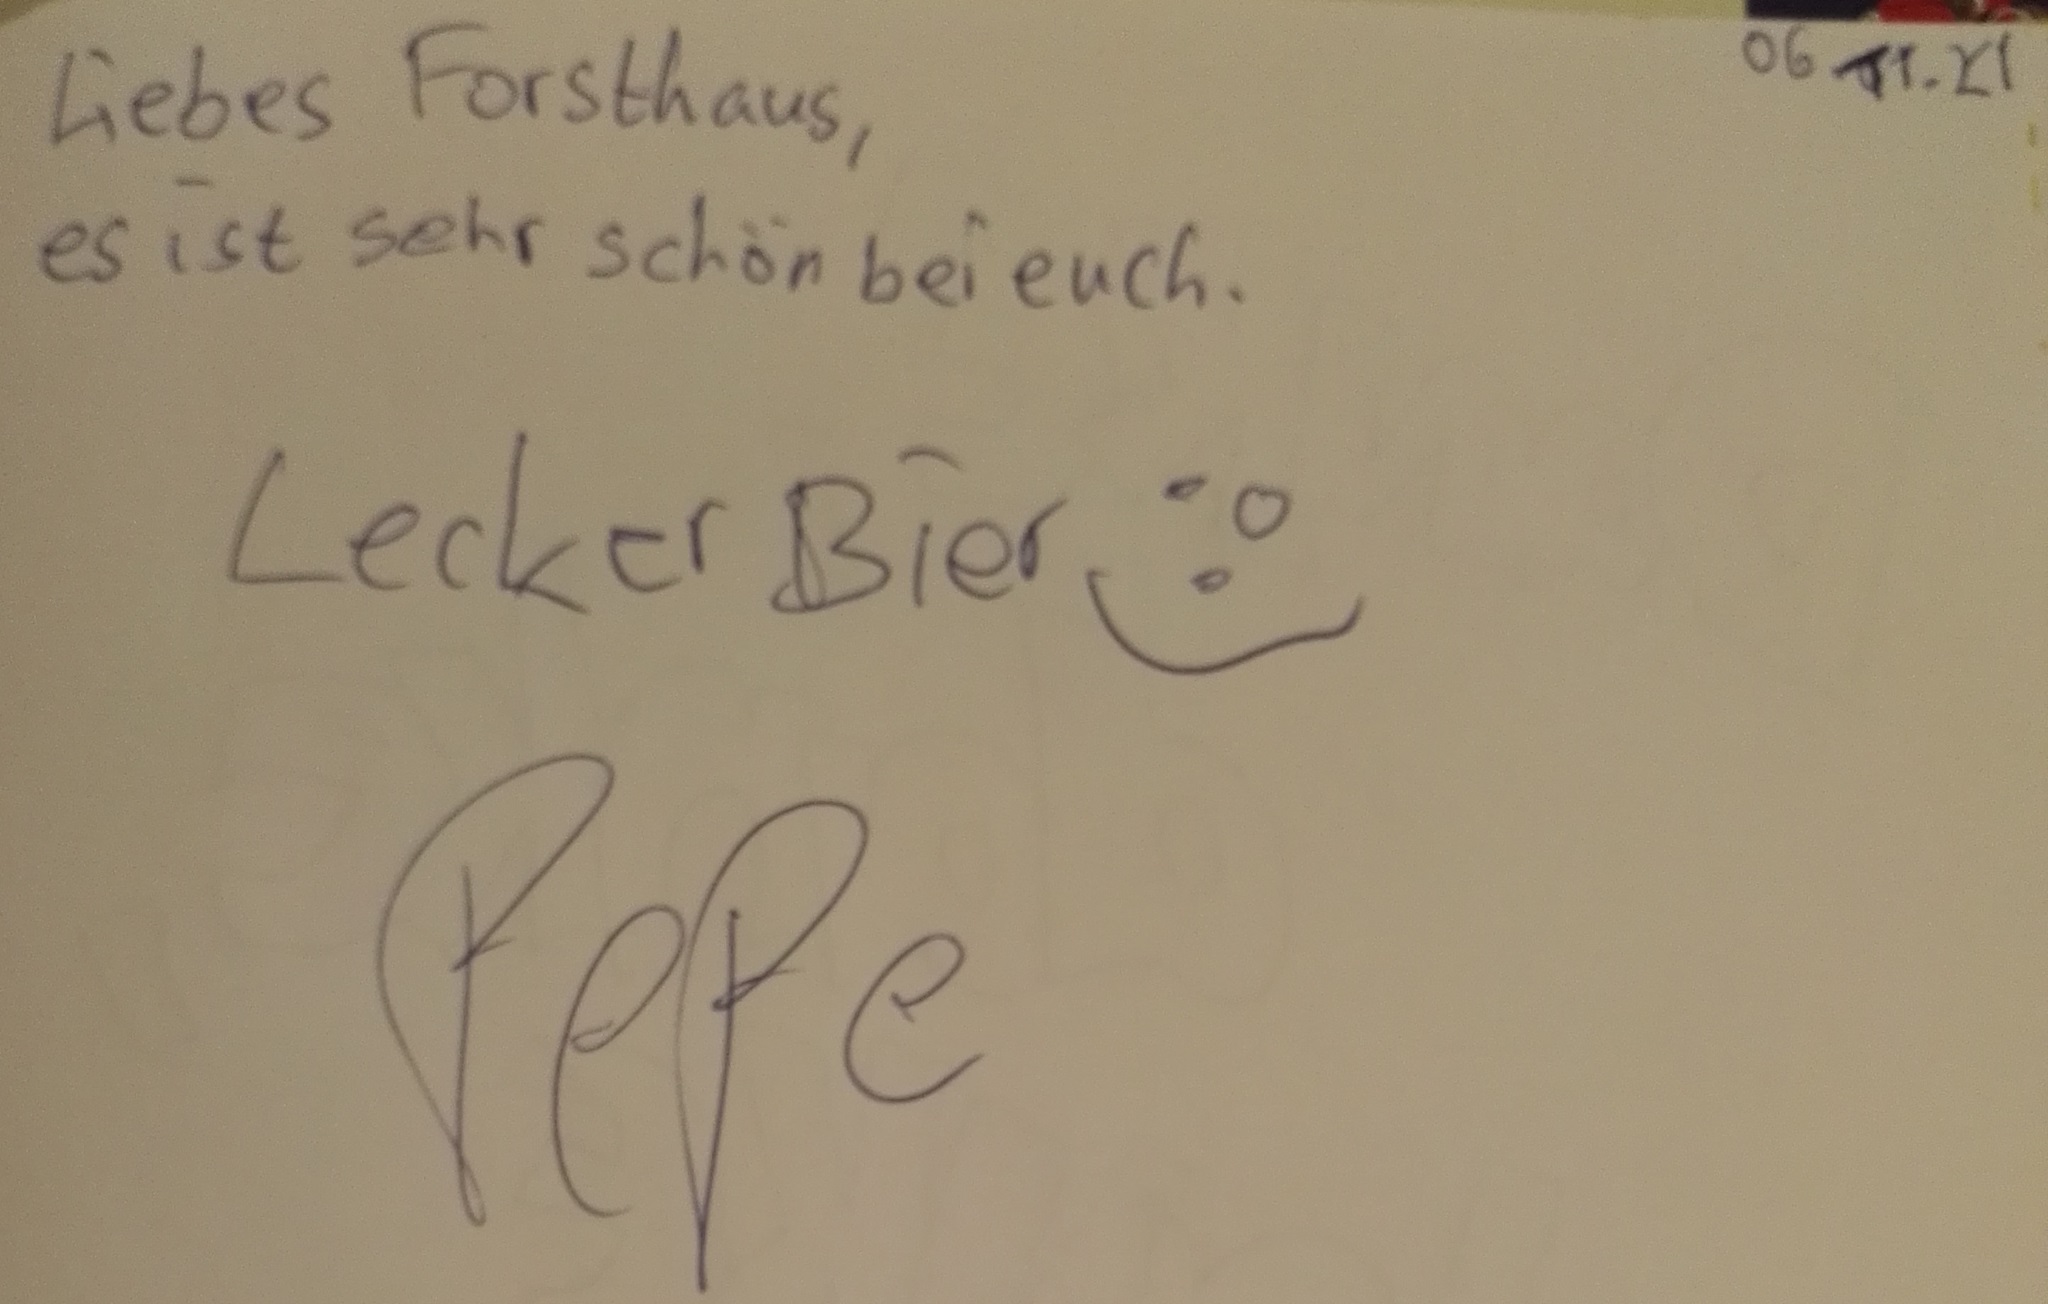 06.11.21
Liebes Forsthaus,
es ist sehr schön bei euch.
Lecker Bier
Pepe